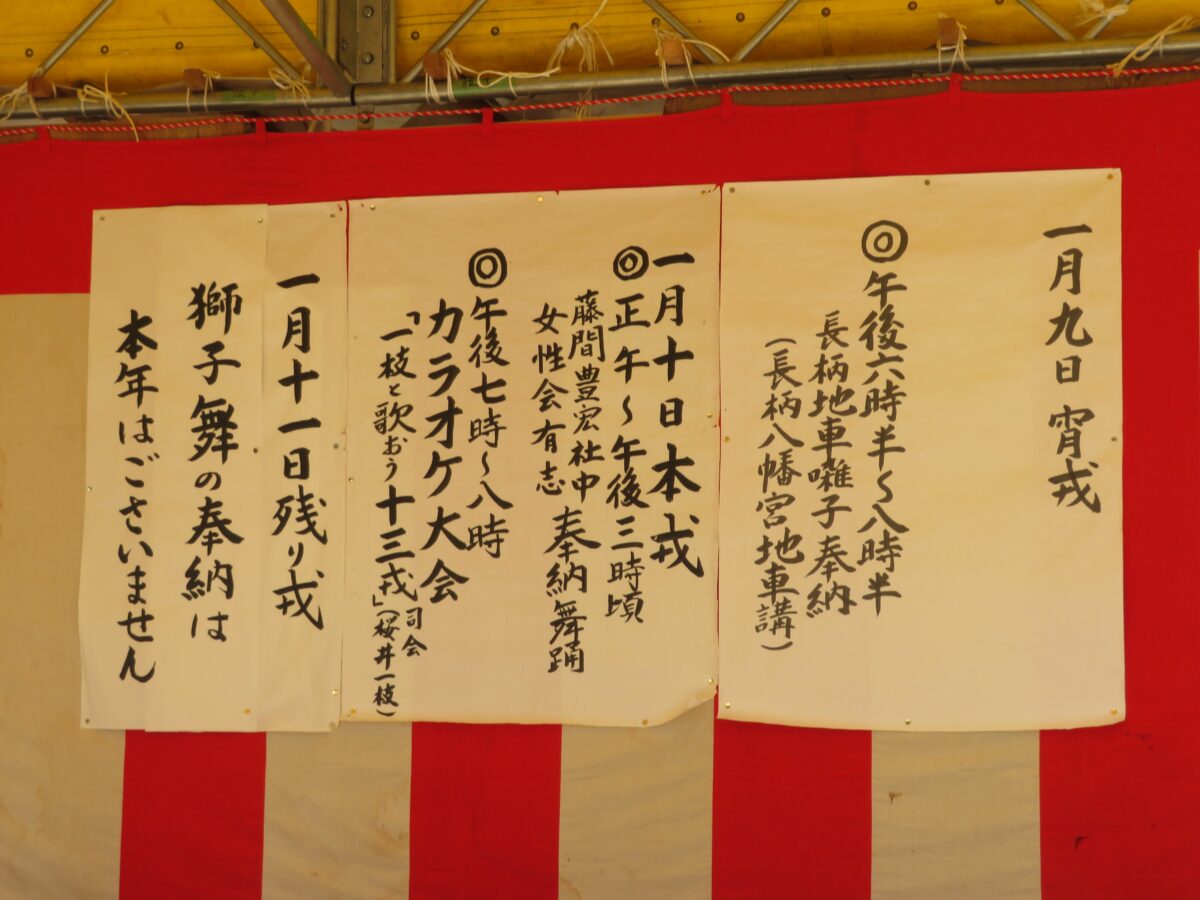 一月九日宵戎
◎午後六時半～八時半
長柄地車囃子奉納
(長柄八幡宮地車講)
一月十日本戎
◎正午～午後三時頃
藤間豊宏社中
女性会有志
奉納舞踊
◎午後七時～八時
カラオケ大会
「一枝と歌おう十三戎」
司会
(桜井一枝)
一月十一日残り戎
獅子舞の奉納は
本年はございません